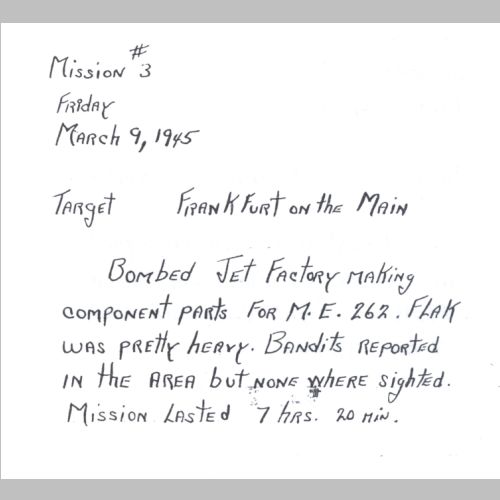 Mission #3
Friday
March 9, 1945
Target Frankfurt on the Main
Bombed Jet Factory making
component parts for M.E. 262. Flak
was pretty heavy. Bandits reported
in the area but none where sighted.
Mission Lasted 7 hrs. 20 min.